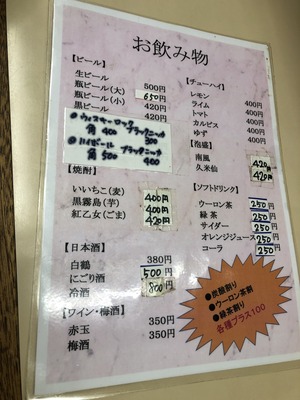 お飲み物
【ビール】
生ビール
瓶ビール(大) 500円
瓶ビール(小) 650
黒ビール 420円
●ウィスキーロック
角 400 ブラックニッカ 300
●ハイボール
角 500 ブラックニッカ 400
【焼酎】
いいちこ(麦) 400円
黒霧島(芋) 400円
紅乙女(ごま) 420円
【日本酒】
白鶴 380円
にごり酒 500円
冷酒 800円
【ワイン・梅酒】
赤玉 350円
梅酒 350円
【チューハイ】
レモン 400円
ライム 400円
トマト 400円
カルピス 400円
ゆず 400円
【泡盛】
南風 420円
久米仙 420円
【ソフトドリンク】
ウーロン茶 250円
緑茶 250円
サイダー 250円
オレンジジュース 250円
コーラ 250円
●炭酸割り
●ウーロン茶割り
●緑茶割り
各種プラス100